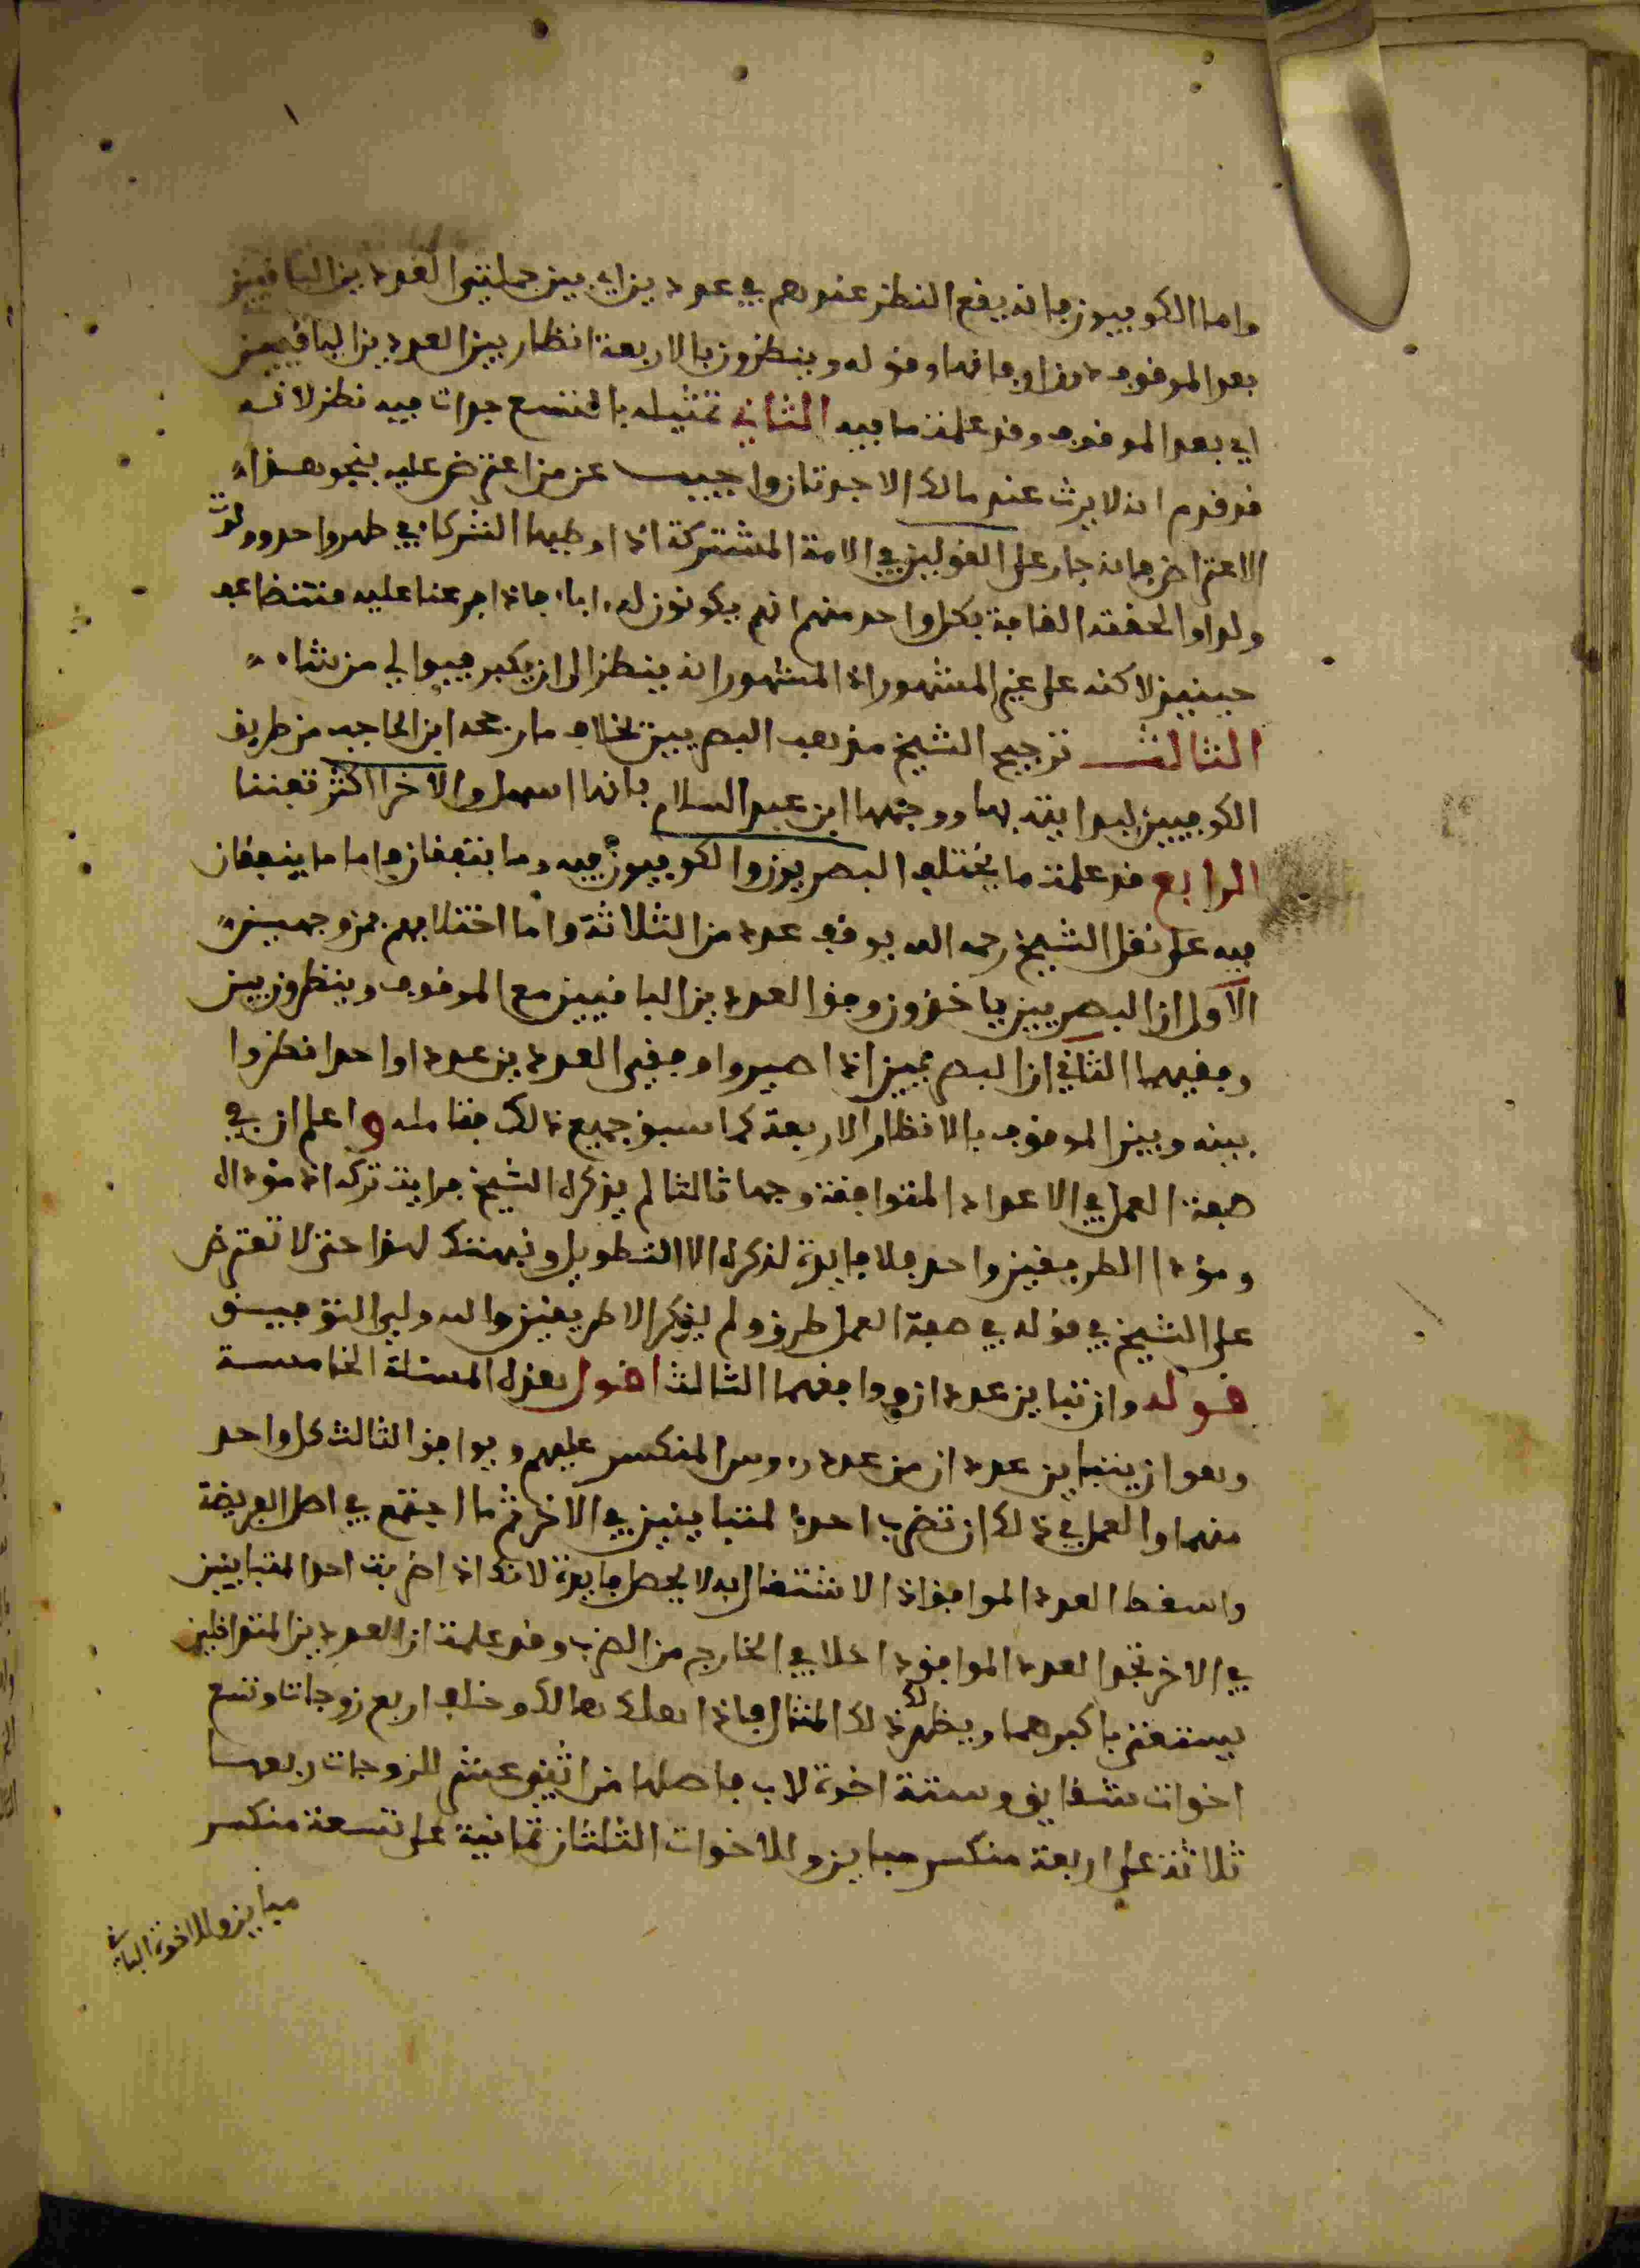 واما الكوفيون فانه يقع النظر عندهم في عددين اي بين جملتي العددين الباقيين
بعد الموقوف من اوفاقهما وقوله وينظرون بالاربعة انظار بين العددين الباقيين
اي بعد الموقوف وقد علمت ما فيه الثاني تمثيله بالتسع جدات فيه نظر لانه
قد قدم انه لا يرث عند مالك الا جدتان واجيب عن من اعترض عليه بنحو هذا
الاعتراض بانه جار على القولين في الامة المشتركة اذا وطيها الشركا في طهر واحد وولدت
ولدا والحقته القافة بكل واحد منهم انهم يكونون له اباء فاذا فرعنا عليه فتتضاعف
حينيذ لاكنه على غير المشهور اذ المشهور انه ينظر الى ان يكبر فيوالي من شاء
الثالث ترجيح الشيخ مذهب البصريين بخلاف ما رجحه ابن الحاجب من طريق
الكوفيين لبدايته بها ووجهها ابن عبد السلام بانها اسهل والاخرا اكثر تعننا
الرابع قد علمت ما يختلف البصريون والكوفيون فيه وما يتفقان فاما ما يتفقان
فيه على نقل الشيخ رحمه الله يوقف عدد من الثلاثة واما اختلافهم فمن وجهين
الاول ان البصريين ياخذون وفق العددين الباقيين مع الموقوف وينظرون بين
وفقيهما الثاني ان البصريين اذا صيروا وفقي العددين عددا واحدا نظروا
بينه وبين الموقوف بالانظار الاربعة كما سبق جميع ذلك فتامله واعلم ان في
صفة العمل في الاعداد المتوافقة وجها ثالثا لم يذكره الشيخ فرايت تركه اذ موداه
ومودا الطريقين واحد فلا فايدة لذكره الا التطويل ونبهتك لهذا حتى لا تعترض
على الشيخ في قوله في صفة العمل طرق ولم يذكر الا طريقين والله ولي التوفيق
قوله وان تباين عددان ووافقهما الثالث اقول هذه المسئلة الخامسة
وهو ان يتباين عددان من عدد رءوس المنكسر عليهم ويوافق الثالث كل واحد
منهما والعمل في ذلك ان تضرب احد المتباينين في الاخر ثم ما اجتمع في اصل الفريضة
واسقط العدد الموافق اذ الاشتغال به لا يحصل فايدة لانك اذا ضربت احد المتباينين
في الاخر تجد العدد الموافق داخلا في الخارج من الضرب وقد علمت ان العددين المتداخلين
يستغنى باكبرهما ويظهر لك ذلك المثال فاذا هلك هالك وخلف اربع زوجات وتسع
اخوات شقايق وستة اخوة لاب فاصلها من اثني عشر للزوجات ربعها
ثلاثة على اربعة منكسر مباين وللاخوات الثلثان ثمانية على تسعة منكسر
مباين وللاخوة الباقي